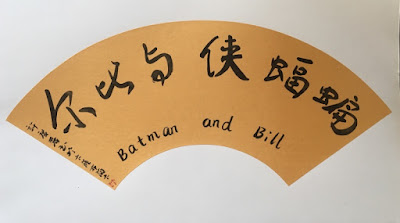 蝙蝠侠与比尔
Batman and Bill